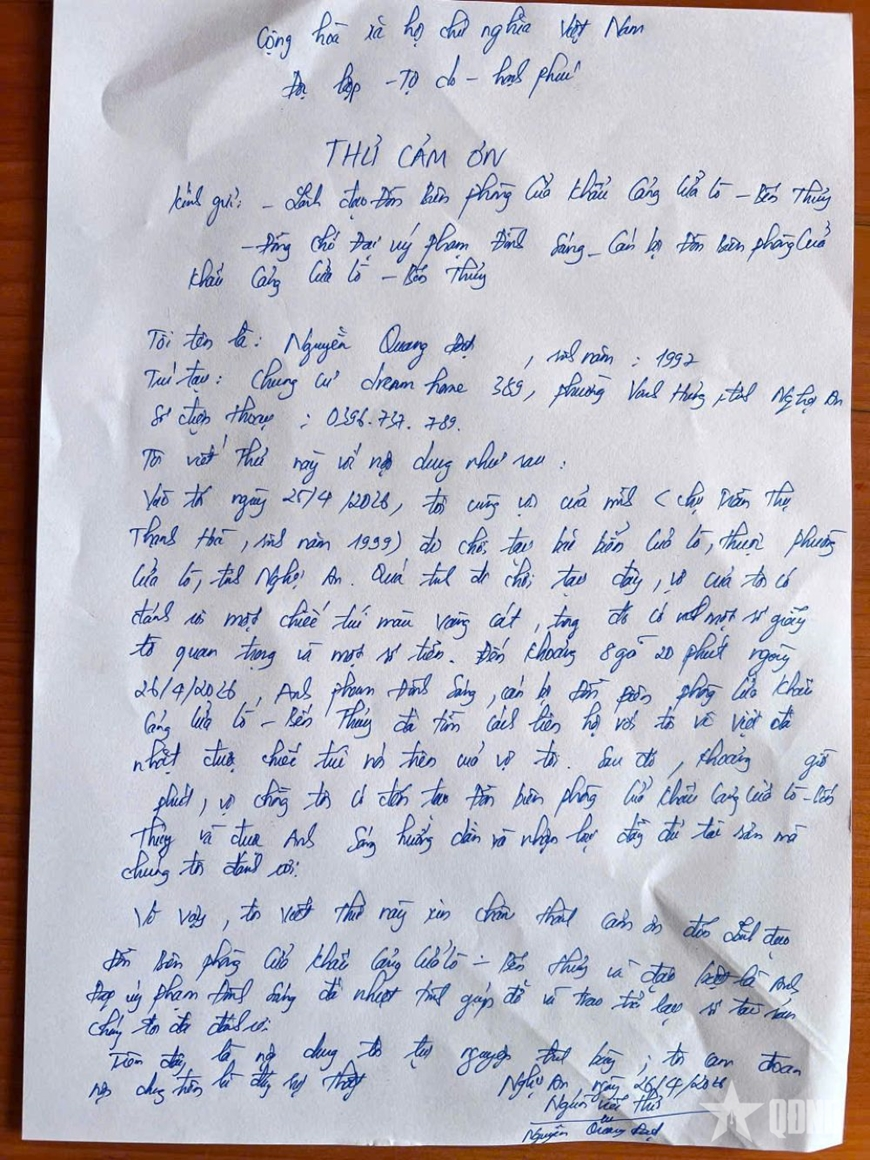 Cộng hoà xã hội chủ nghĩa Việt Nam
Độc lập - Tự do - hạnh phúc
THƯ CẢM ƠN
Kính gửi: - Lãnh đạo Đồn Biên phòng Cửa khẩu Cảng Cửa Lò - Bến Thủy
- Đồng chí Đại uý phạm Đình Sáng - Cán bộ Đồn Biên phòng Cửa
khẩu Cảng Cửa Lò - Bến Thủy
Tôi tên là: Nguyễn Quang Đạt, sinh năm: 1992
Trú tại: Chung cư dream home 389, phường Vinh Hưng, tỉnh Nghệ An
Số điện thoại: 0396.737.789.
Tôi viết thư này với nội dung như sau:
Vào tối ngày 25/4/2026, tôi cùng vợ của mình (chị Trần Thị
Thanh Hoà, sinh năm 1999) đi chơi tại bờ biển Cửa Lò, thuộc phường
Cửa Lò, tỉnh Nghệ An. Quá trình đi chơi tại đây, vợ của tôi có
đánh rơi một chiếc túi màu vàng cát, trong đó có một số giấy
tờ quan trọng và một số tiền. Đến khoảng 8 giờ 20 phút ngày
26/4/2026, Anh phạm Đình Sáng, cán bộ Đồn Biên phòng Cửa khẩu
Cảng Cửa Lò - Bến Thủy đã tìm cách liên hệ với tôi về việc đã
nhặt được chiếc túi nói trên của vợ tôi. Sau đó, khoảng giờ
phút, vợ chồng tôi có đến tại Đồn biên phòng Cửa khẩu Cảng Cửa Lò - Bến
Thủy và được Anh Sáng hướng dẫn và nhận lại đầy đủ tài sản mà
chúng tôi đánh rơi.
Vì vậy, tôi viết thư này xin chân thành cảm ơn đến Lãnh đạo
Đồn Biên phòng Cửa khẩu Cảng Cửa Lò - Bến Thủy và đặc biệt là Anh
Đại úy phạm Đình Sáng đã nhiệt tình giúp đỡ và trao trả lại số tài sản
chúng tôi đã đánh rơi.
Trên đây là nội dung tôi tự nguyện trình bày, tôi cam đoan
nội dung trên là đúng sự thật
Nghệ An ngày 26/4/2026
Người viết thư
Nguyễn Quang Đạt
QĐND